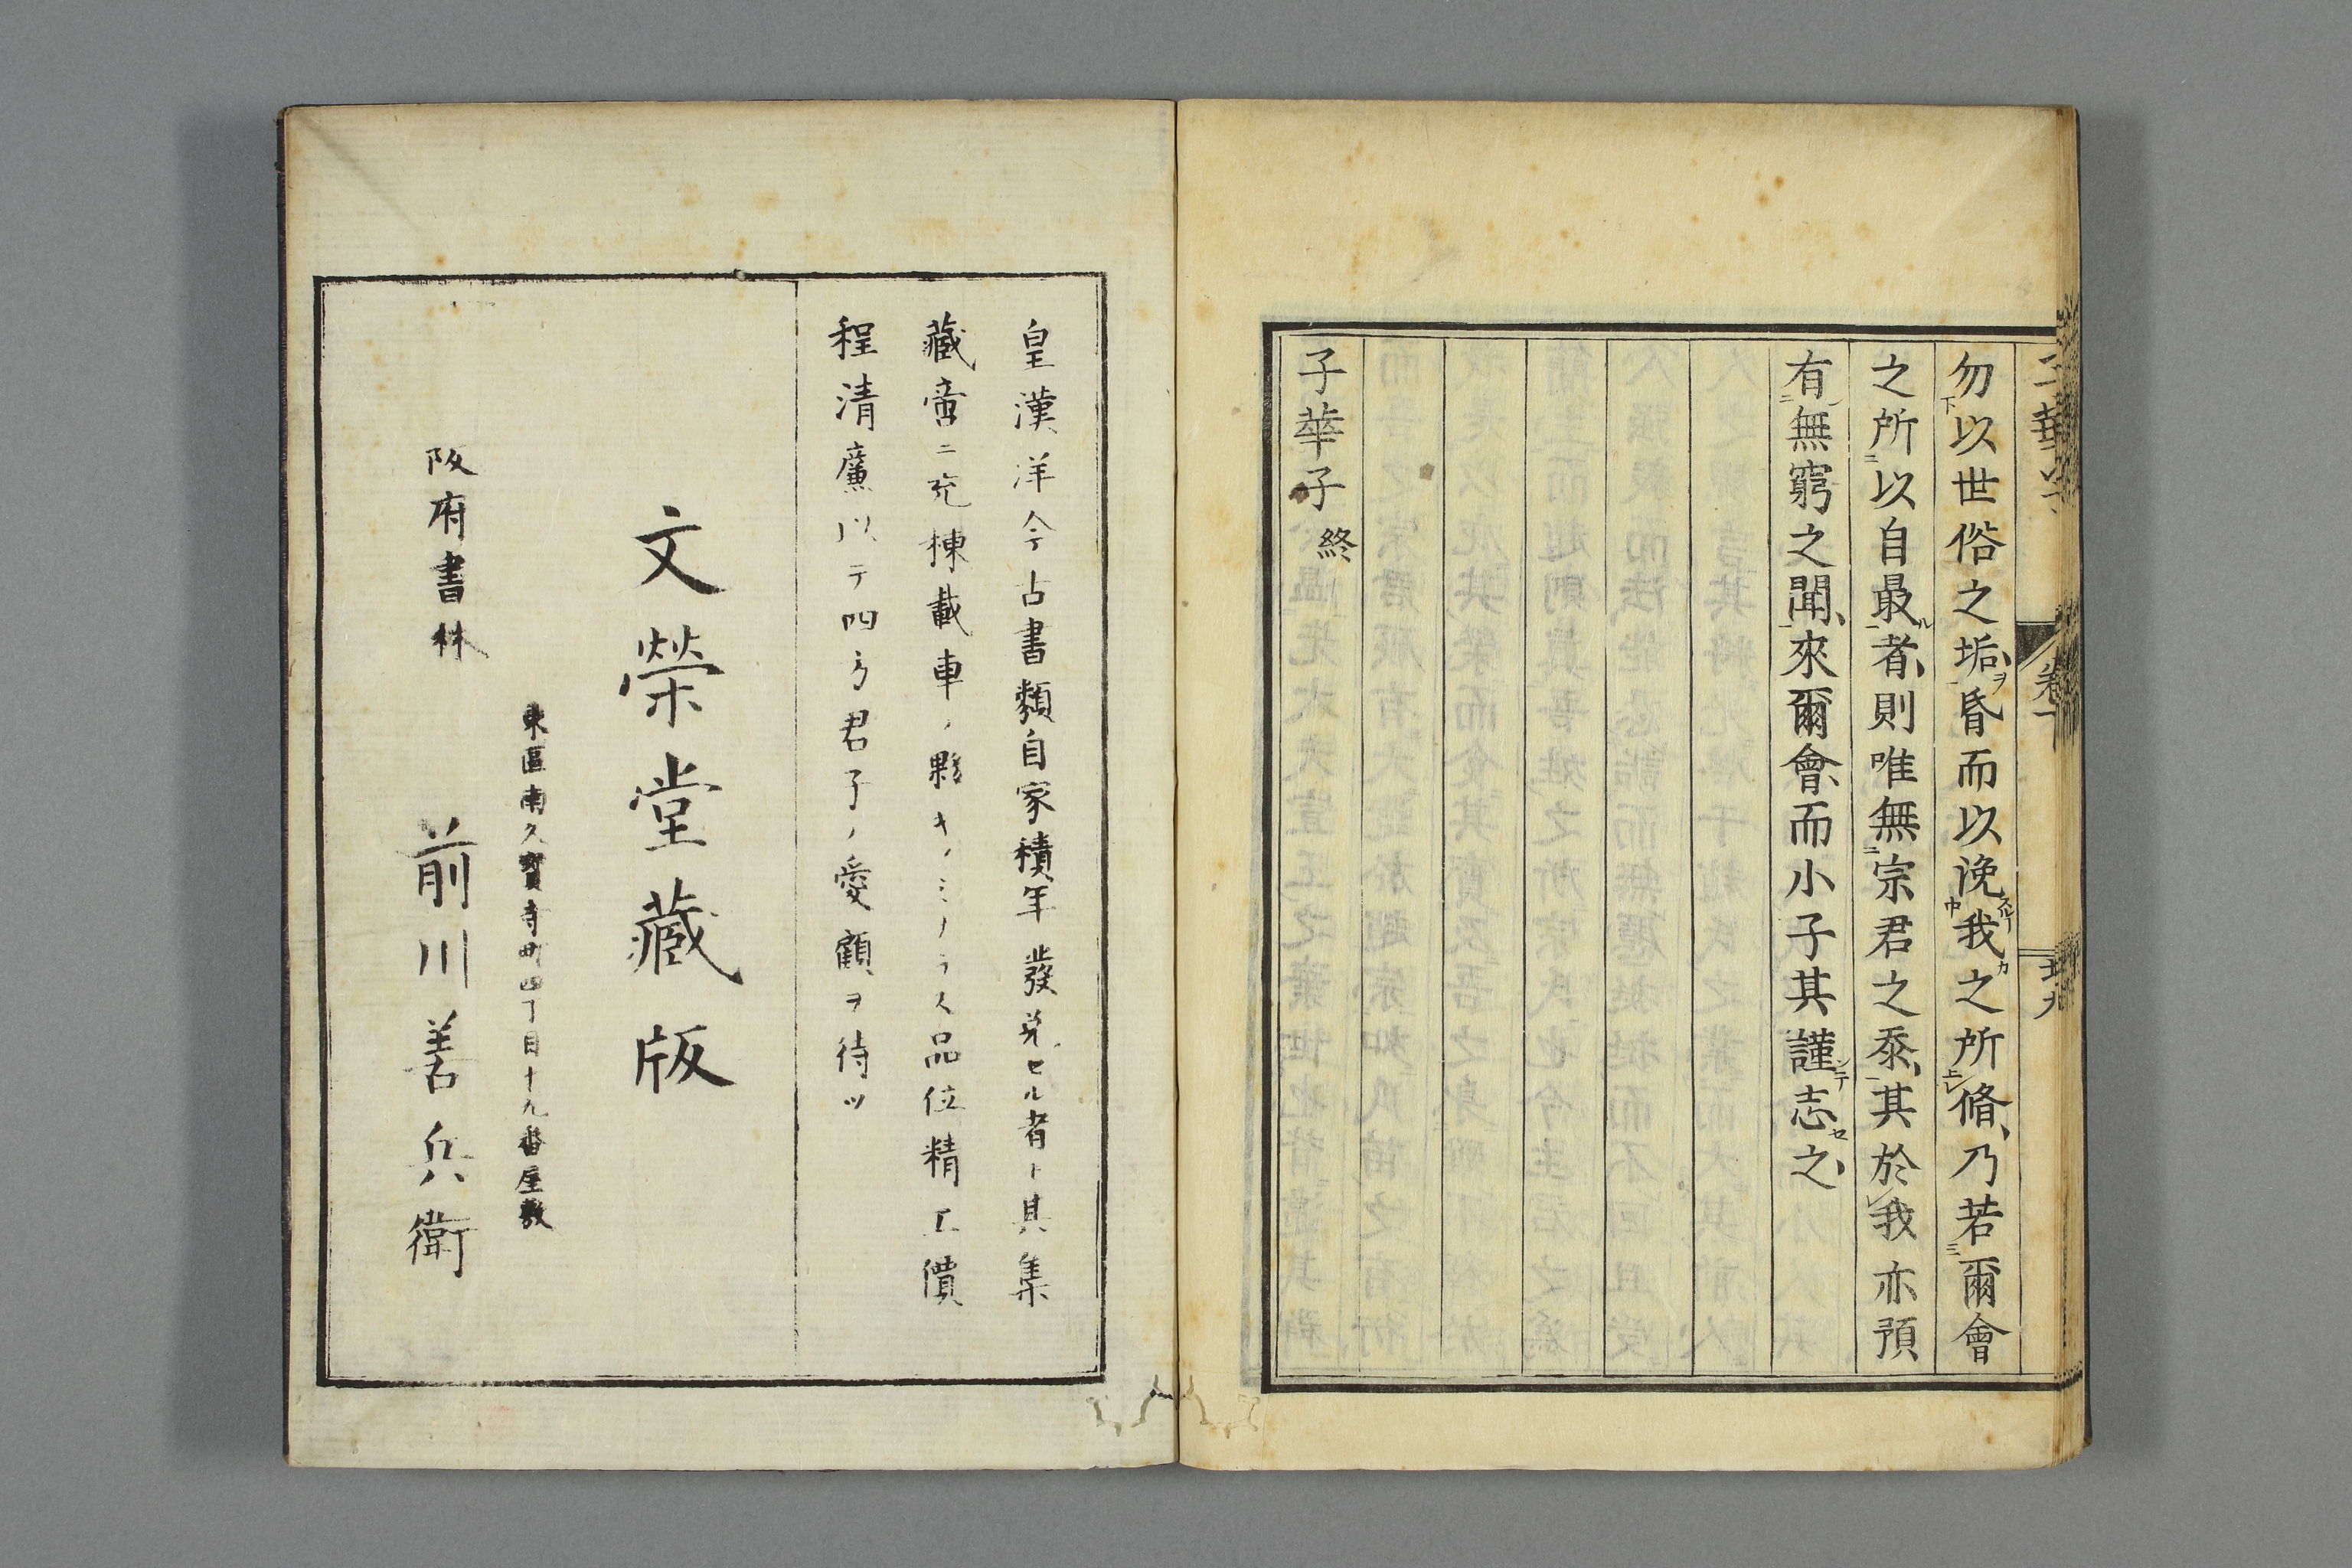 勿以世俗之垢昏而以浼我之所脩乃若爾會
之所以自最者則唯無宗君之忝其於我亦預
有無窮之聞來爾會而小子其謹志之
子華子 終
皇漢洋今古書類自家積年發兌セル者ト其集
藏啻ニ充棟載車ノ夥キノミナラス品位精工價
程清廉以テ四方君子ノ愛顧ヲ待ツ
文榮堂藏版
東區南久寶寺町四丁目十九番屋敷
阪府書林 前川善兵衛